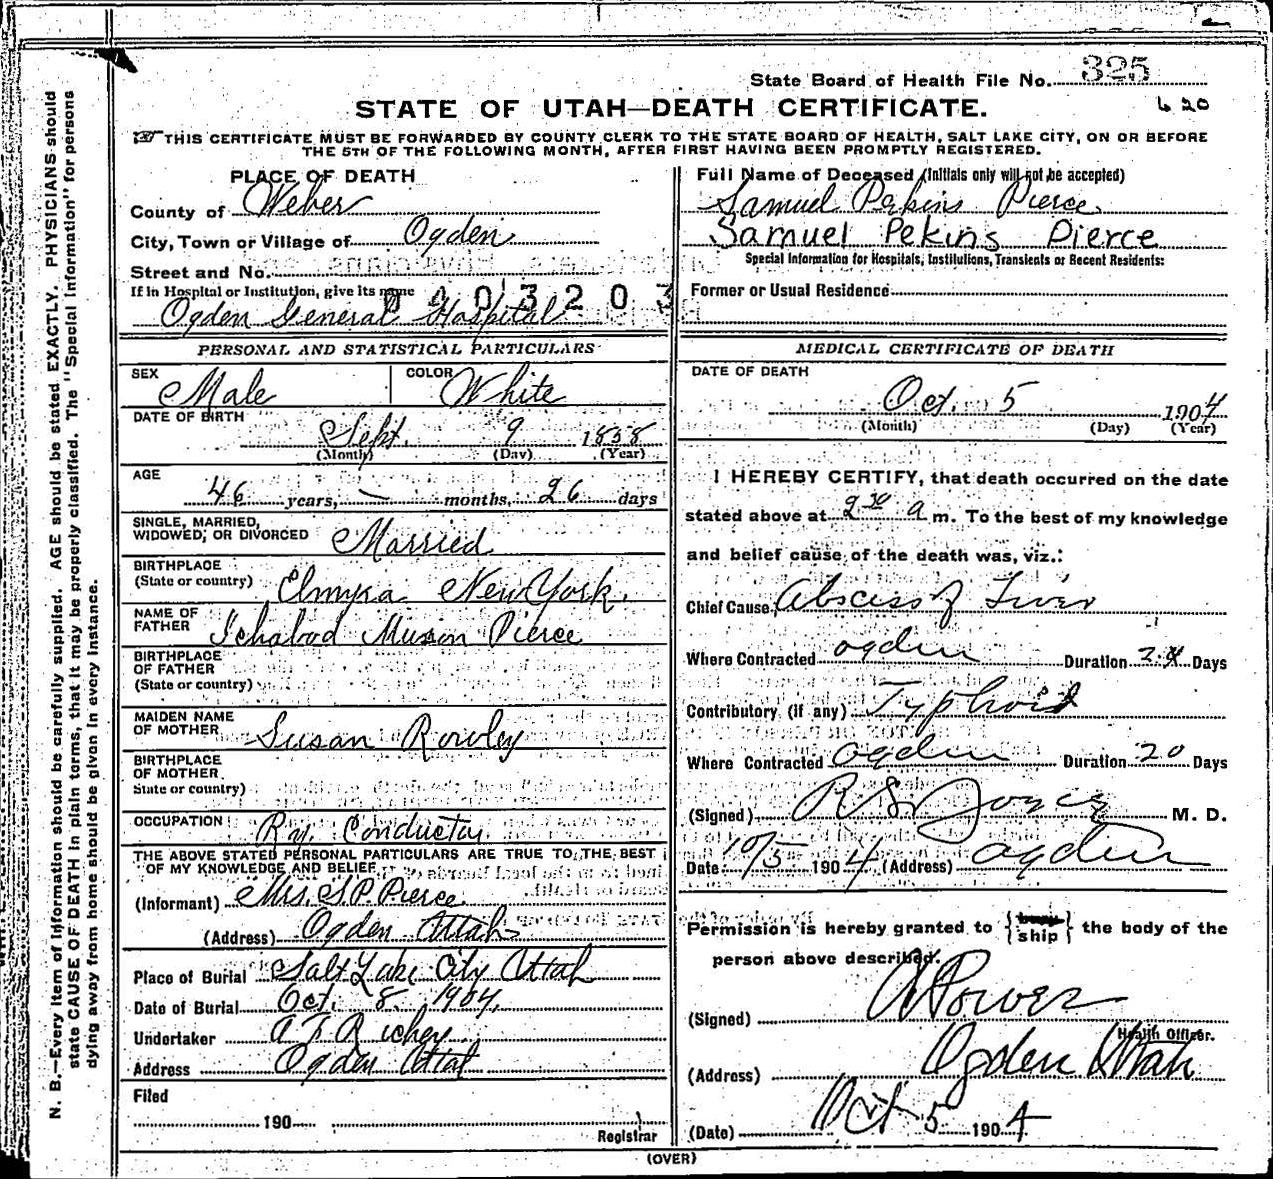 State Board of Health File No. 325
STATE OF UTAH—DEATH CERTIFICATE.
6 20
THIS CERTIFICATE MUST BE FORWARDED BY COUNTY CLERK TO THE STATE BOARD OF HEALTH, SALT LAKE CITY, ON OR BEFORE
THE 5TH OF THE FOLLOWING MONTH, AFTER FIRST HAVING BEEN PROMPTLY REGISTERED.
PLACE OF DEATH
County of Weber
City, Town or Village of Ogden
Street and No.
If in Hospital or Institution, give its name
Ogden General Hospital
0 4 0 3 2 0 3
Full Name of Deceased (Initials only will not be accepted)
Samuel Perkins Pierce
Samuel Pekins Pierce
Special Information for Hospitals, Institutions, Transients or Recent Residents:
Former or Usual Residence
PERSONAL AND STATISTICAL PARTICULARS
SEX Male COLOR White
DATE OF BIRTH
Sept. 9 1858
(Month) (Day) (Year)
AGE
46 years, — months, 26 days
SINGLE, MARRIED,
WIDOWED, OR DIVORCED Married
BIRTHPLACE
(State or country) Elmyra New York.
NAME OF
FATHER Ichabod Munson Pierce
BIRTHPLACE
OF FATHER
(State or country)
MAIDEN NAME
OF MOTHER Susan Rowley
BIRTHPLACE
OF MOTHER
State or country)
OCCUPATION Ry. Conductor
THE ABOVE STATED PERSONAL PARTICULARS ARE TRUE TO THE BEST
OF MY KNOWLEDGE AND BELIEF
(Informant) Mrs. S.P. Pierce
(Address) Ogden Utah
Place of Burial Salt Lake City Utah
Date of Burial Oct. 8 1904.
Undertaker Richey
Address Ogden Utah
Filed
190
Registrar
MEDICAL CERTIFICATE OF DEATH
DATE OF DEATH
Oct. 5 1904
(Month) (Day) (Year)
I HEREBY CERTIFY, that death occurred on the date
stated above at 2 30 a m. To the best of my knowledge
and belief cause of the death was, viz.:
Chief Cause Abscess of Liver
Where Contracted Ogden Duration Days
Contributory (if any) Typhoid
Where Contracted Ogden Duration 20 Days
(Signed) R S Joyce M. D.
Date 10/5 1904 (Address) Ogden
Permission is hereby granted to {bury ship} the body of the
person above described.
(Signed) A Power
Health Officer.
(Address) Ogden Utah
(Date) Oct 5 1904
(OVER)
N. B.—Every item of information should be carefully supplied. AGE should be stated EXACTLY. PHYSICIANS should
state CAUSE OF DEATH in plain terms, that it may be properly classified. The "Special Information" for persons
dying away from home should be given in every instance.